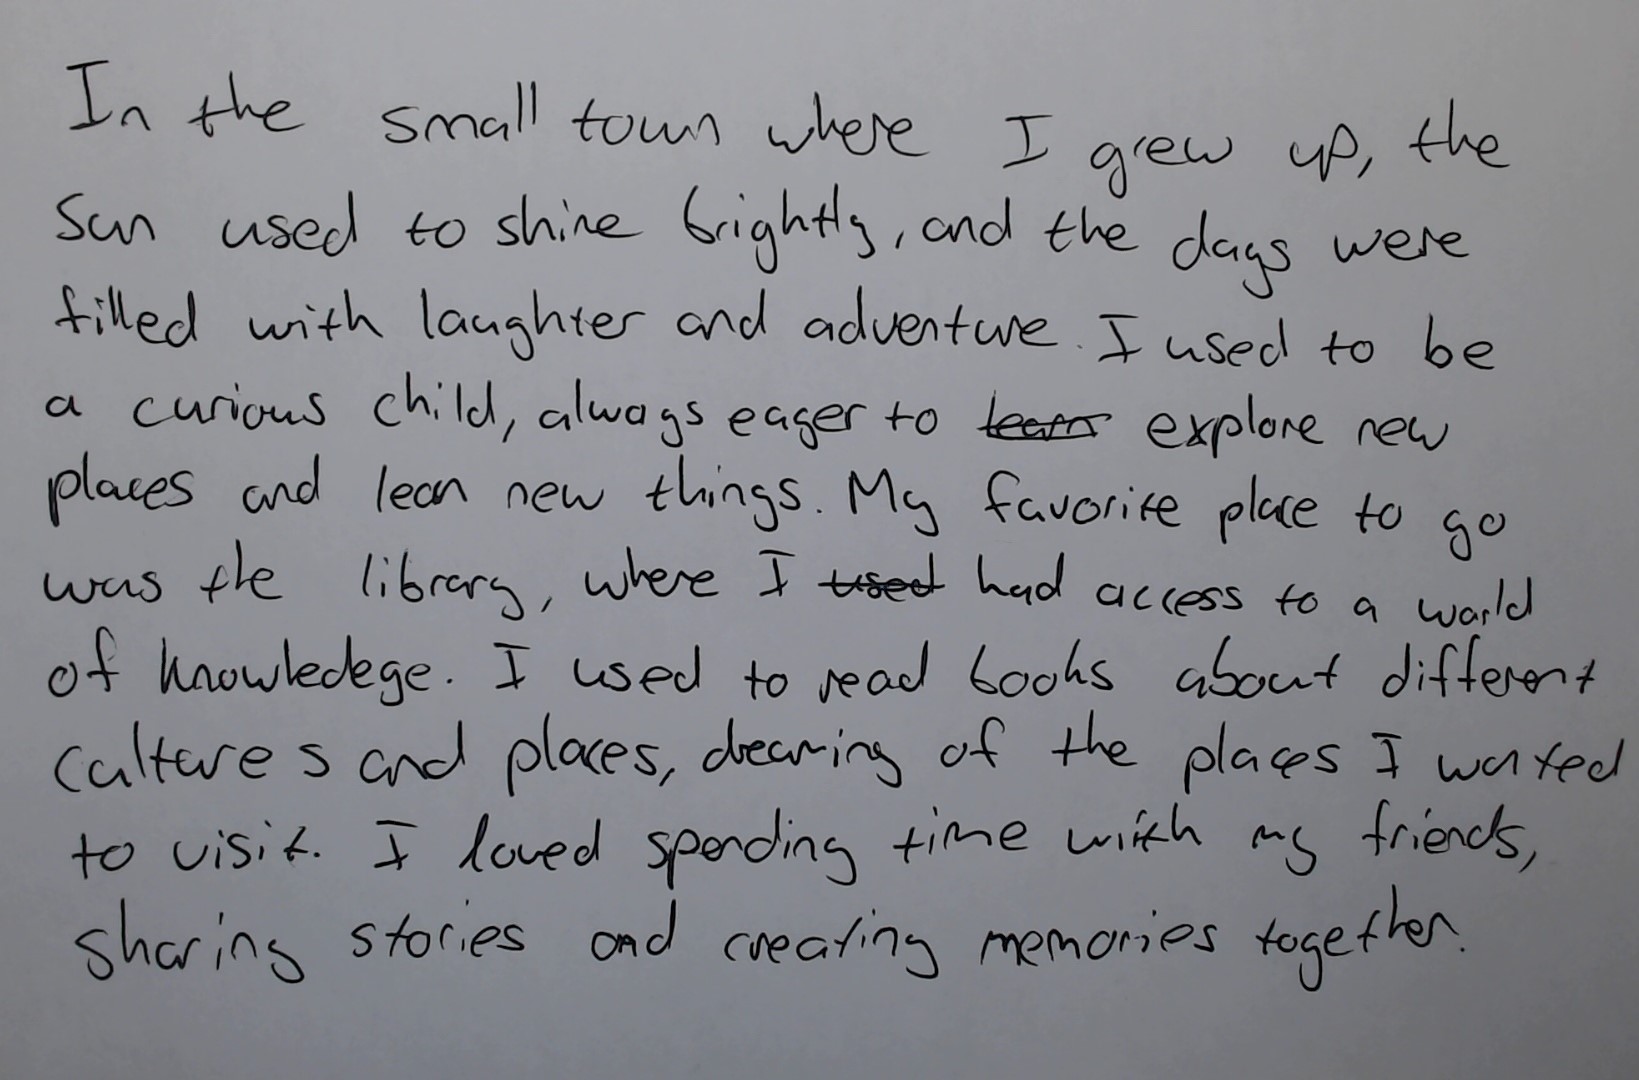 In the small town where I grew up, the
sun used to shine brightly, and the days were
filled with laughter and adventure. I used to be
a curious child, always eager to learn explore new
places and lean new things. My favorite place to go
was the library, where I used had access to a world
of knowledege. I used to read books about different
cultures and places, dreaming of the places I wanted
to visit. I loved spending time with my friends,
sharing stories and creating memories together.